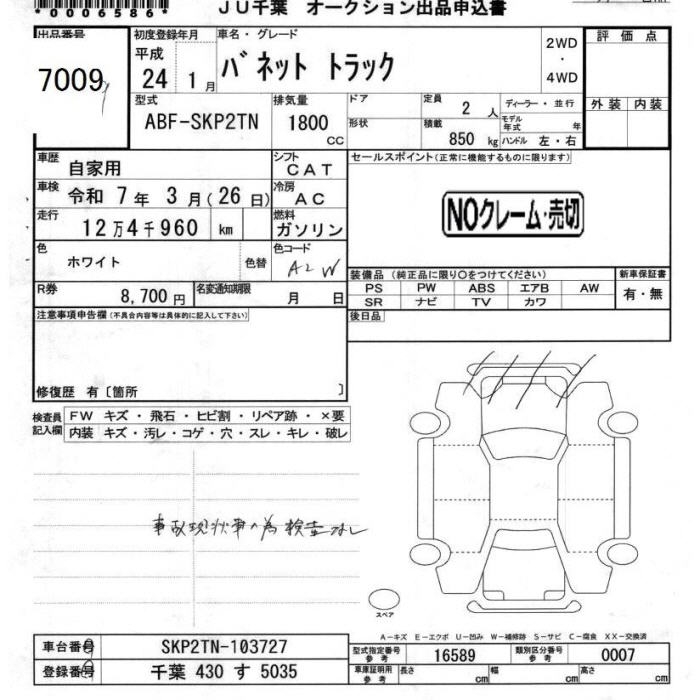 *0006586*
JU千葉 オークション出品申込書
出品番号
7009
初度登録年月
平成
24 1月
車名・グレード
バネット トラック
2WD
・
4WD
評価点
外装 内装
型式
ABF-SKP2TN
排気量
1800
cc
ドア
形状
定員 2 人
積載 850 kg
ディーラー・並行
モデル年式 年
ハンドル 左・右
車歴
自家用
シフト
CAT
車検 令和 7年 3月(26日)
冷房
AC
走行
12万4千960 km
燃料
ガソリン
色
ホワイト
色替
色コード
A2W
R券
8,700円
名変通知期限
月 日
セールスポイント(正常に機能するものに限ります)
NOクレーム・売切
装備品(純正品に限り○をつけてください)
PS PW ABS エアB AW
SR ナビ TV カワ
新車保証書
有・無
後日品
注意事項申告欄(不具合内容等は具体的に記入して下さい)
修復歴 有〔箇所 〕
検査員記入欄
FW キズ・飛石・ヒビ割・リペア跡・×要
内装 キズ・汚レ・コゲ・穴・スレ・キレ・破レ
事故現状車の為検査なし
スペア
A-キズ E-エクボ U-凹み W-補修跡 S-サビ C-腐食 XX-交換済
車台番号
SKP2TN-103727
登録番号
千葉 430 す 5035
型式指定番号
参考
16589
類別区分番号
参考
0007
車庫証明用
参考
長さ cm
幅 cm
高さ cm